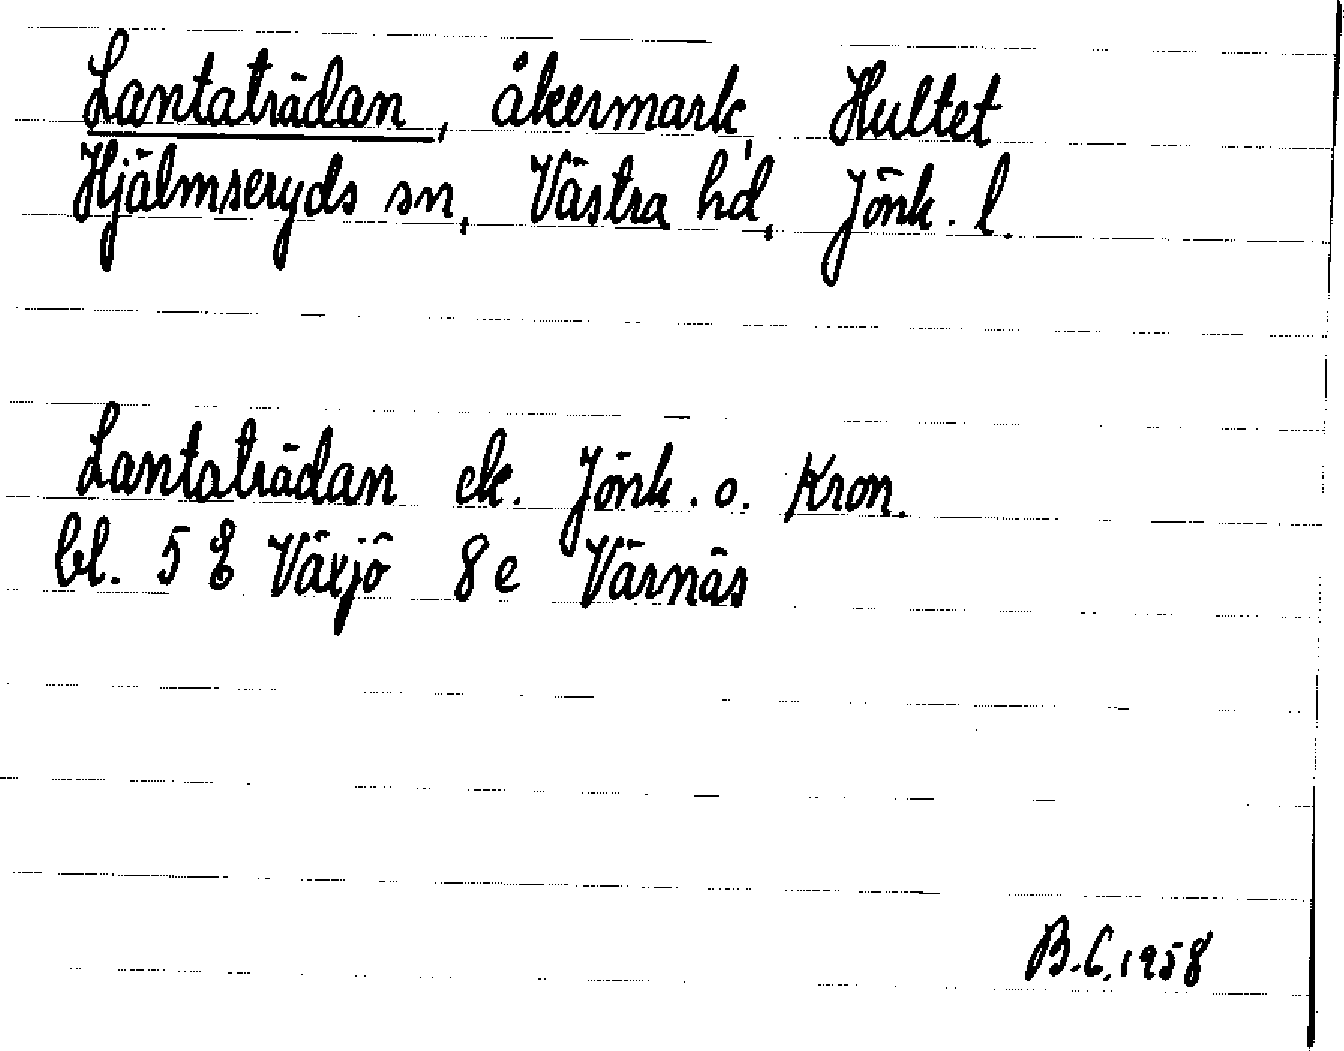 Lantaträdan, åkermark, Hultet
Hjälmseryds sn, Västra hd, Jönk. l.
Lantaträdan ek. Jönk. o. Kron.
bl. 5 E Växjö 8 e Värnäs
B.C. 1958